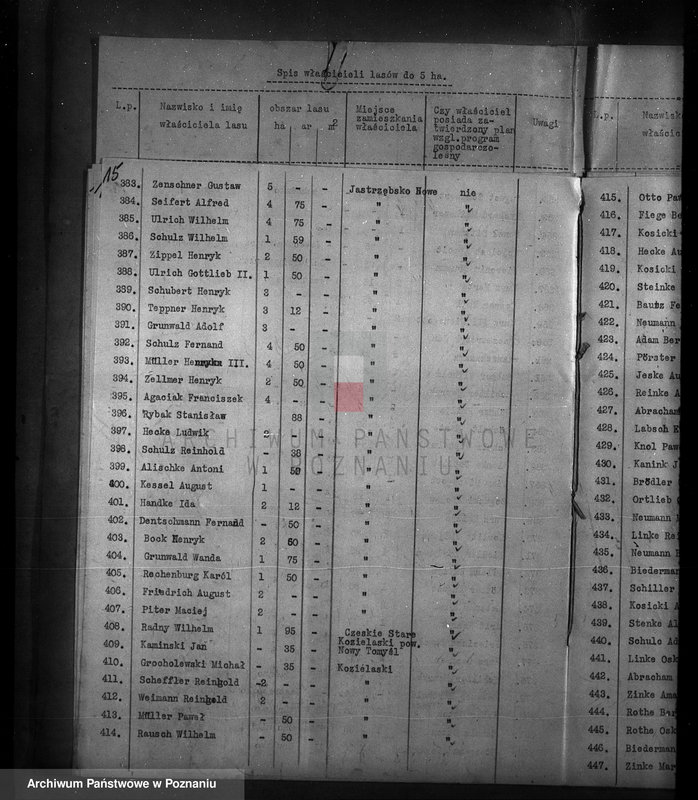 Spis właścicieli lasów do 5 ha.
L.p. Nazwisko i imię właściciela lasu obszar lasu ha ar m2 Miejsce zamieszkania właściciela Czy właściciel posiada zatwierdzony plan wzgl.program gospodarczo-leśny Uwagi
15
383. Zenschner Gustaw 5 - - Jastrzębsko Nowe nie
384. Seifert Alfred 4 75 - " "
385. Ulrich Wilhelm 4 75 - " "
386. Schulz Wilhelm 1 59 - " "
387. Zippel Henryk 2 50 - " "
388. Ulrich Gottlieb II. 1 50 - " "
389. Schubert Henryk 2 - - " "
390. Teppner Henryk 3 12 - " "
391. Grunwald Adolf 3 - - " "
392. Schulz Fernand 4 50 - " "
393. Müller Henryk III. 4 50 - " "
394. Zellmer Henryk 2 50 - " "
395. Agaciak Franciszek 4 - - " "
396. Rybak Stanisław 88 - " "
397. Hecke Ludwik 2 - - " "
398. Schulz Reinhold - 38 - " "
399. Alischke Antoni 1 50 - " "
400. Kessel August 1 - - " "
401. Handke Ida 2 12 - " "
402. Dentschmann Fernand - 50 - " "
403. Bock Henryk 2 50 - " "
404. Grunwald Wanda 1 75 - " "
405. Rechenburg Karól 1 50 - " "
406. Friedrich August 2 - - " "
407. Piter Maciej 2 - - " "
408. Radny Wilhelm 1 95 - Czeskie Stare "
409. Kaminski Jan - 35 - Kozielaski pow. Nowy Tomyśl "
410. Grocholewski Michał - 35 - Kozielaski "
411. Scheffler Reinhold -2 - - " "
412. Weimann Reinhold 2 - - " "
413. Müller Paweł - 50 - " "
414. Rausch Wilhelm - 50 - " "
L.p.
415. Otto
416. Fiege
417. Kosicki
418. Hecke
419. Kosicki
420. Steinke
421. Bautz
422. Neumann
423. Adam
424. Förster
425. Jeske
426. Reinke
427. Abracham
428. Labsch
429. Knol
430. Kanink
431. Brödler
432. Ortlieb
433. Neumann
434. Linke
435. Neumann
436.
437. Schiller
438. Kosicki
439. Stenke
440. Schulc
441. Linke
442. Abracham
443. Zinke
444. Rothe
445. Rothe
446.
447. Zinke
ARCHIWUM PAŃSTWOWE
W POZNANIU
Archiwum Państwowe w Poznaniu